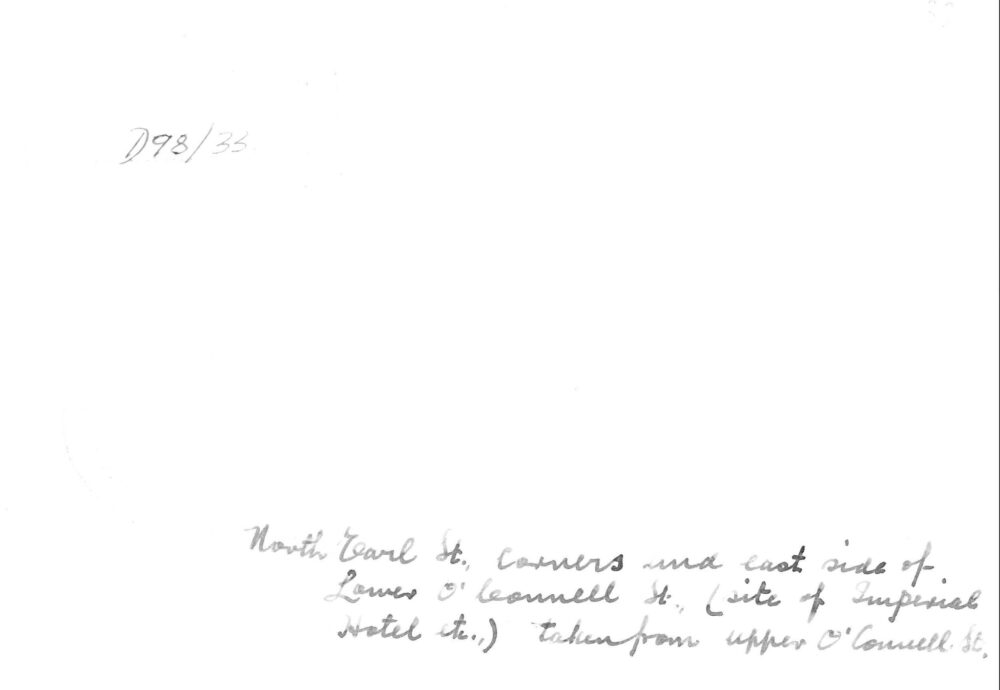 D98/33
North Earl St., corners and east side of
Lower O'Connell St., (site of Imperial
Hotel etc.,) taken from upper O'Connell St.